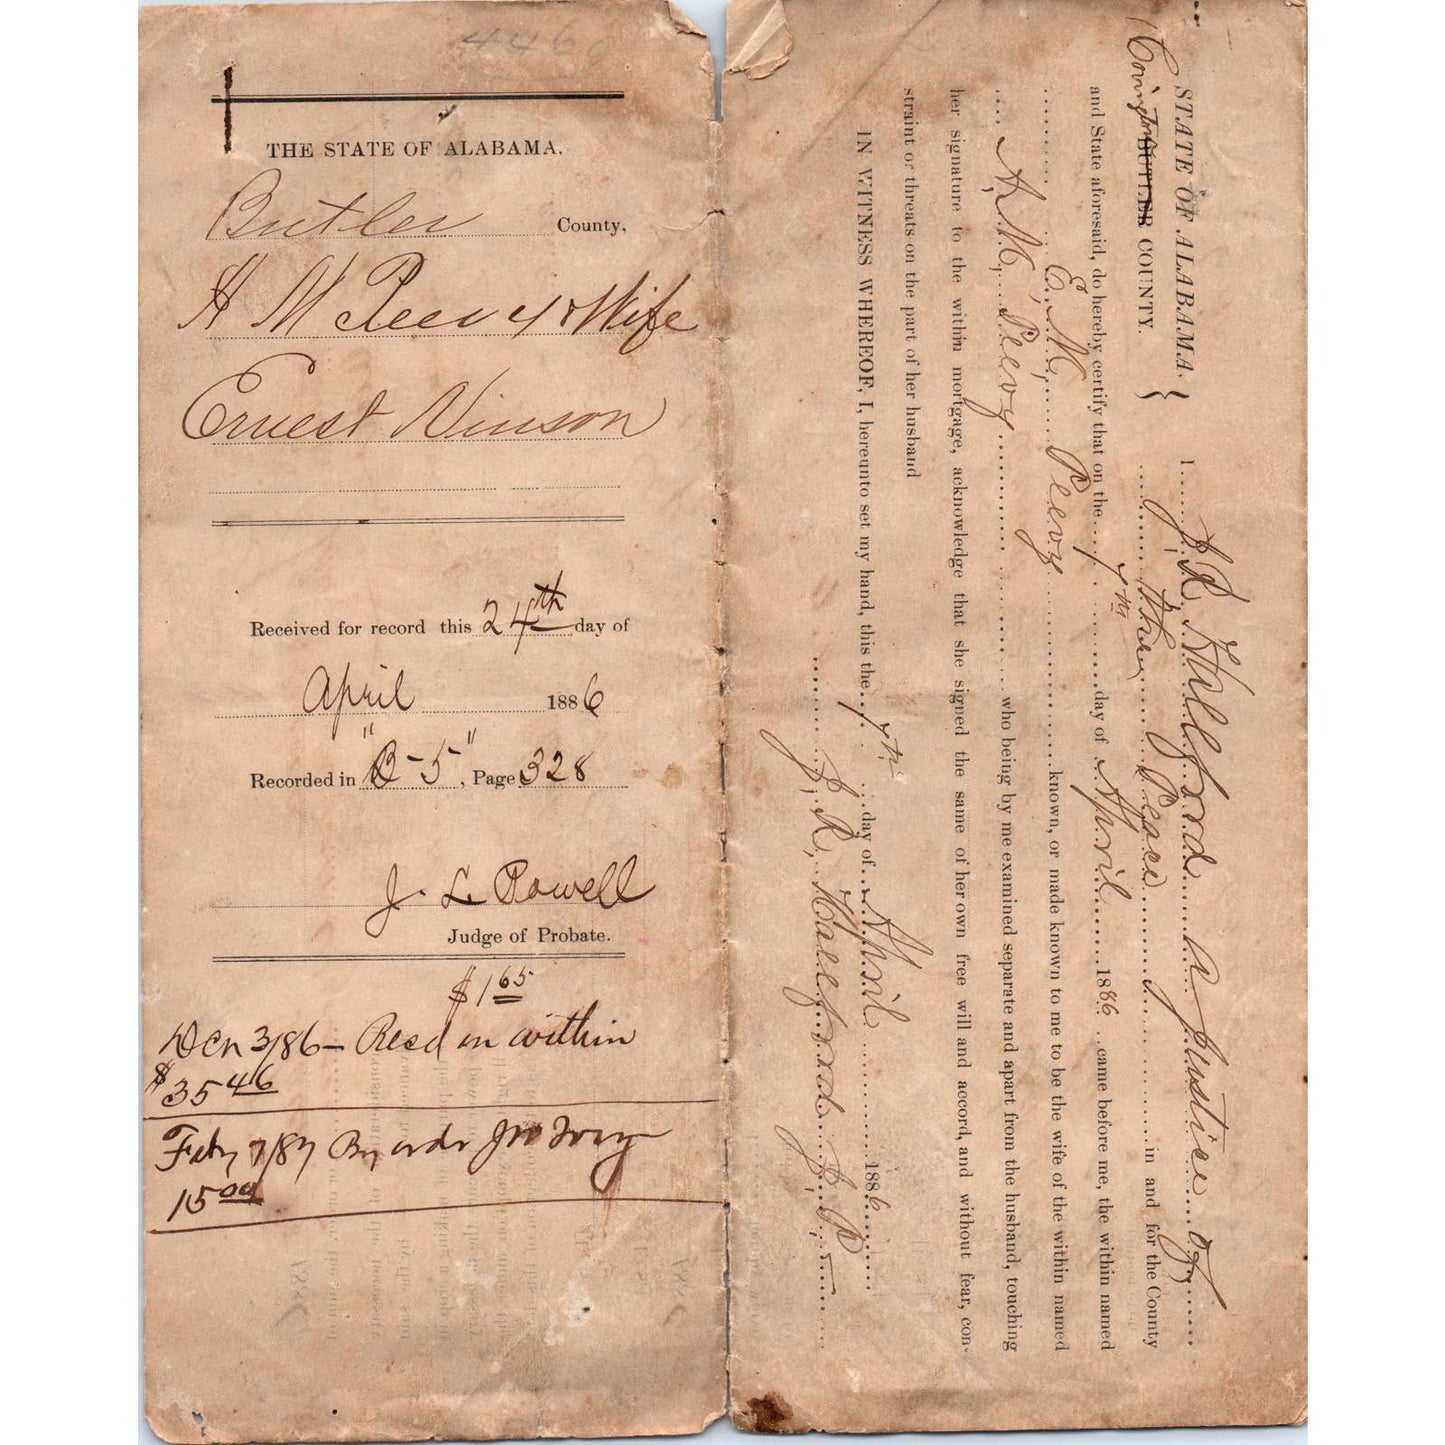 4460
THE STATE OF ALABAMA.
Butler County,
H M Peevy & Wife
Ernest Vinson
Received for record this 24th day of
April 1886
Recorded in "B-5", Page 328
J. L. Powell
Judge of Probate.
$1 65
Decr 3/86 - Recd on within
$35 46
Feby 7/87 By order Jno
15 00
STATE OF ALABAMA,
Covington BUTLER COUNTY.
I J. R. Hallford a Justice of
the Peace in and for the County
and State aforesaid, do hereby certify that on the 7th day of April 1886 came before me, the within named
E. M. Peevy known, or made known to me to be the wife of the within named
A. M. Peevy who being by me examined separate and apart from the husband, touching
her signature to the within mortgage, acknowledge that she signed the same of her own free will and accord, and without fear, con-
straint or threats on the part of her husband
IN WITNESS WHEREOF, I, hereunto set my hand, this the 7th day of April 1886
J. R. Hallford J. P.